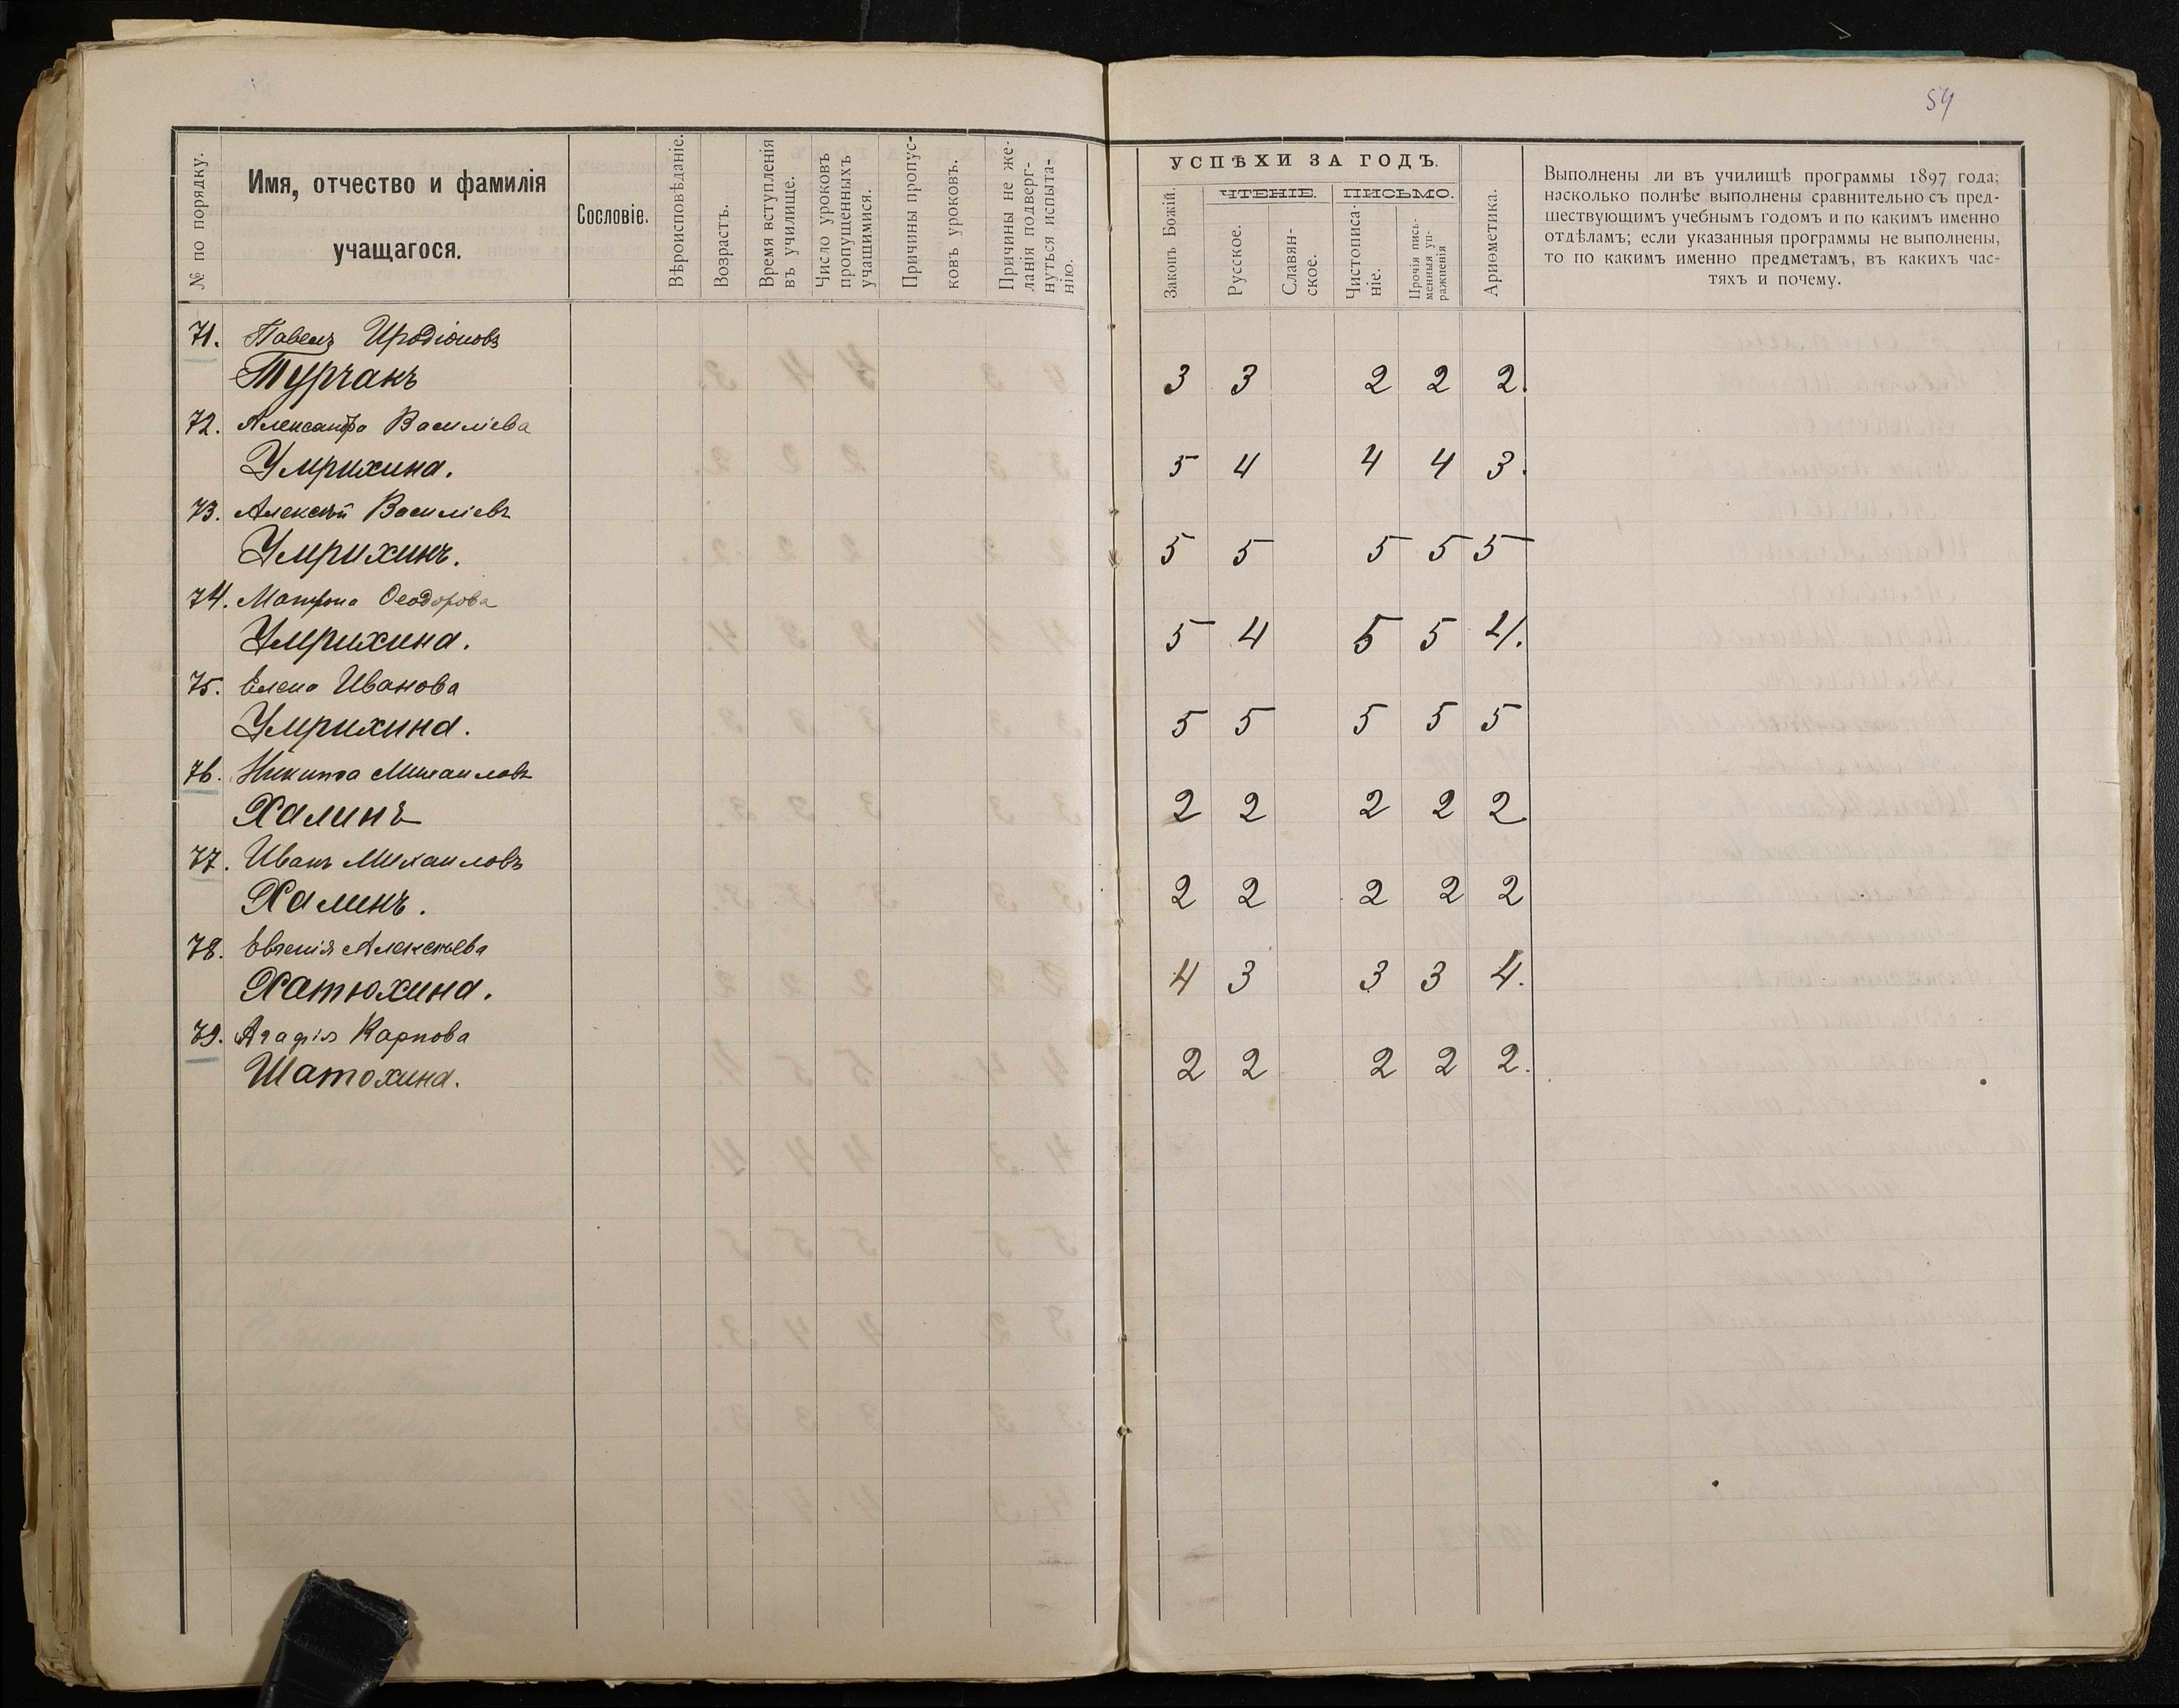 54
№ по порядку.
Имя, отчество и фамилія
учащагося.
Сословіе.
Вѣроисповѣданіе.
Возрастъ.
Время вступленія
въ училище.
Число уроковъ
пропущенныхъ
учащимися.
Причины пропус-
ковъ уроковъ.
Причины не же-
ланія подверг-
нуться испыта-
нію.
УСПѢХИ ЗА ГОДЪ.
Законъ Божій.
ЧТЕНІЕ.
Русское.
Славян-
ское.
ПИСЬМО.
Чистописа-
ніе.
Прочія пись-
менныя уп-
ражненія
Ариѳметика.
Выполнены ли въ училищѣ программы 1897 года;
насколько полнѣе выполнены сравнительно съ пред-
шествующимъ учебнымъ годомъ и по какимъ именно
отдѣламъ; если указанныя программы не выполнены,
то по какимъ именно предметамъ, въ какихъ час-
тяхъ и почему.
71. Павелъ Иродіоновъ
Турчакъ 3 3 2 2 2.
72. Александра Василіева
Умрихина. 5 4 4 4 3.
73. Алексѣй Василіевъ
Умрихинъ. 5 5 5 5 5
74. Матрона Ѳеодорова
Умрихина. 5 4 5 5 4.
75. Елена Иванова
Умрихина. 5 5 5 5 5
76. Никита Михаиловъ
Халинъ 2 2 2 2 2.
77. Иванъ Михаиловъ
Халинъ. 2 2 2 2 2
78. Евгенія Алексѣева
Хатюхина. 4 3 3 3 4.
79. Агафія Карпова
Шатохина. 2 2 2 2 2.